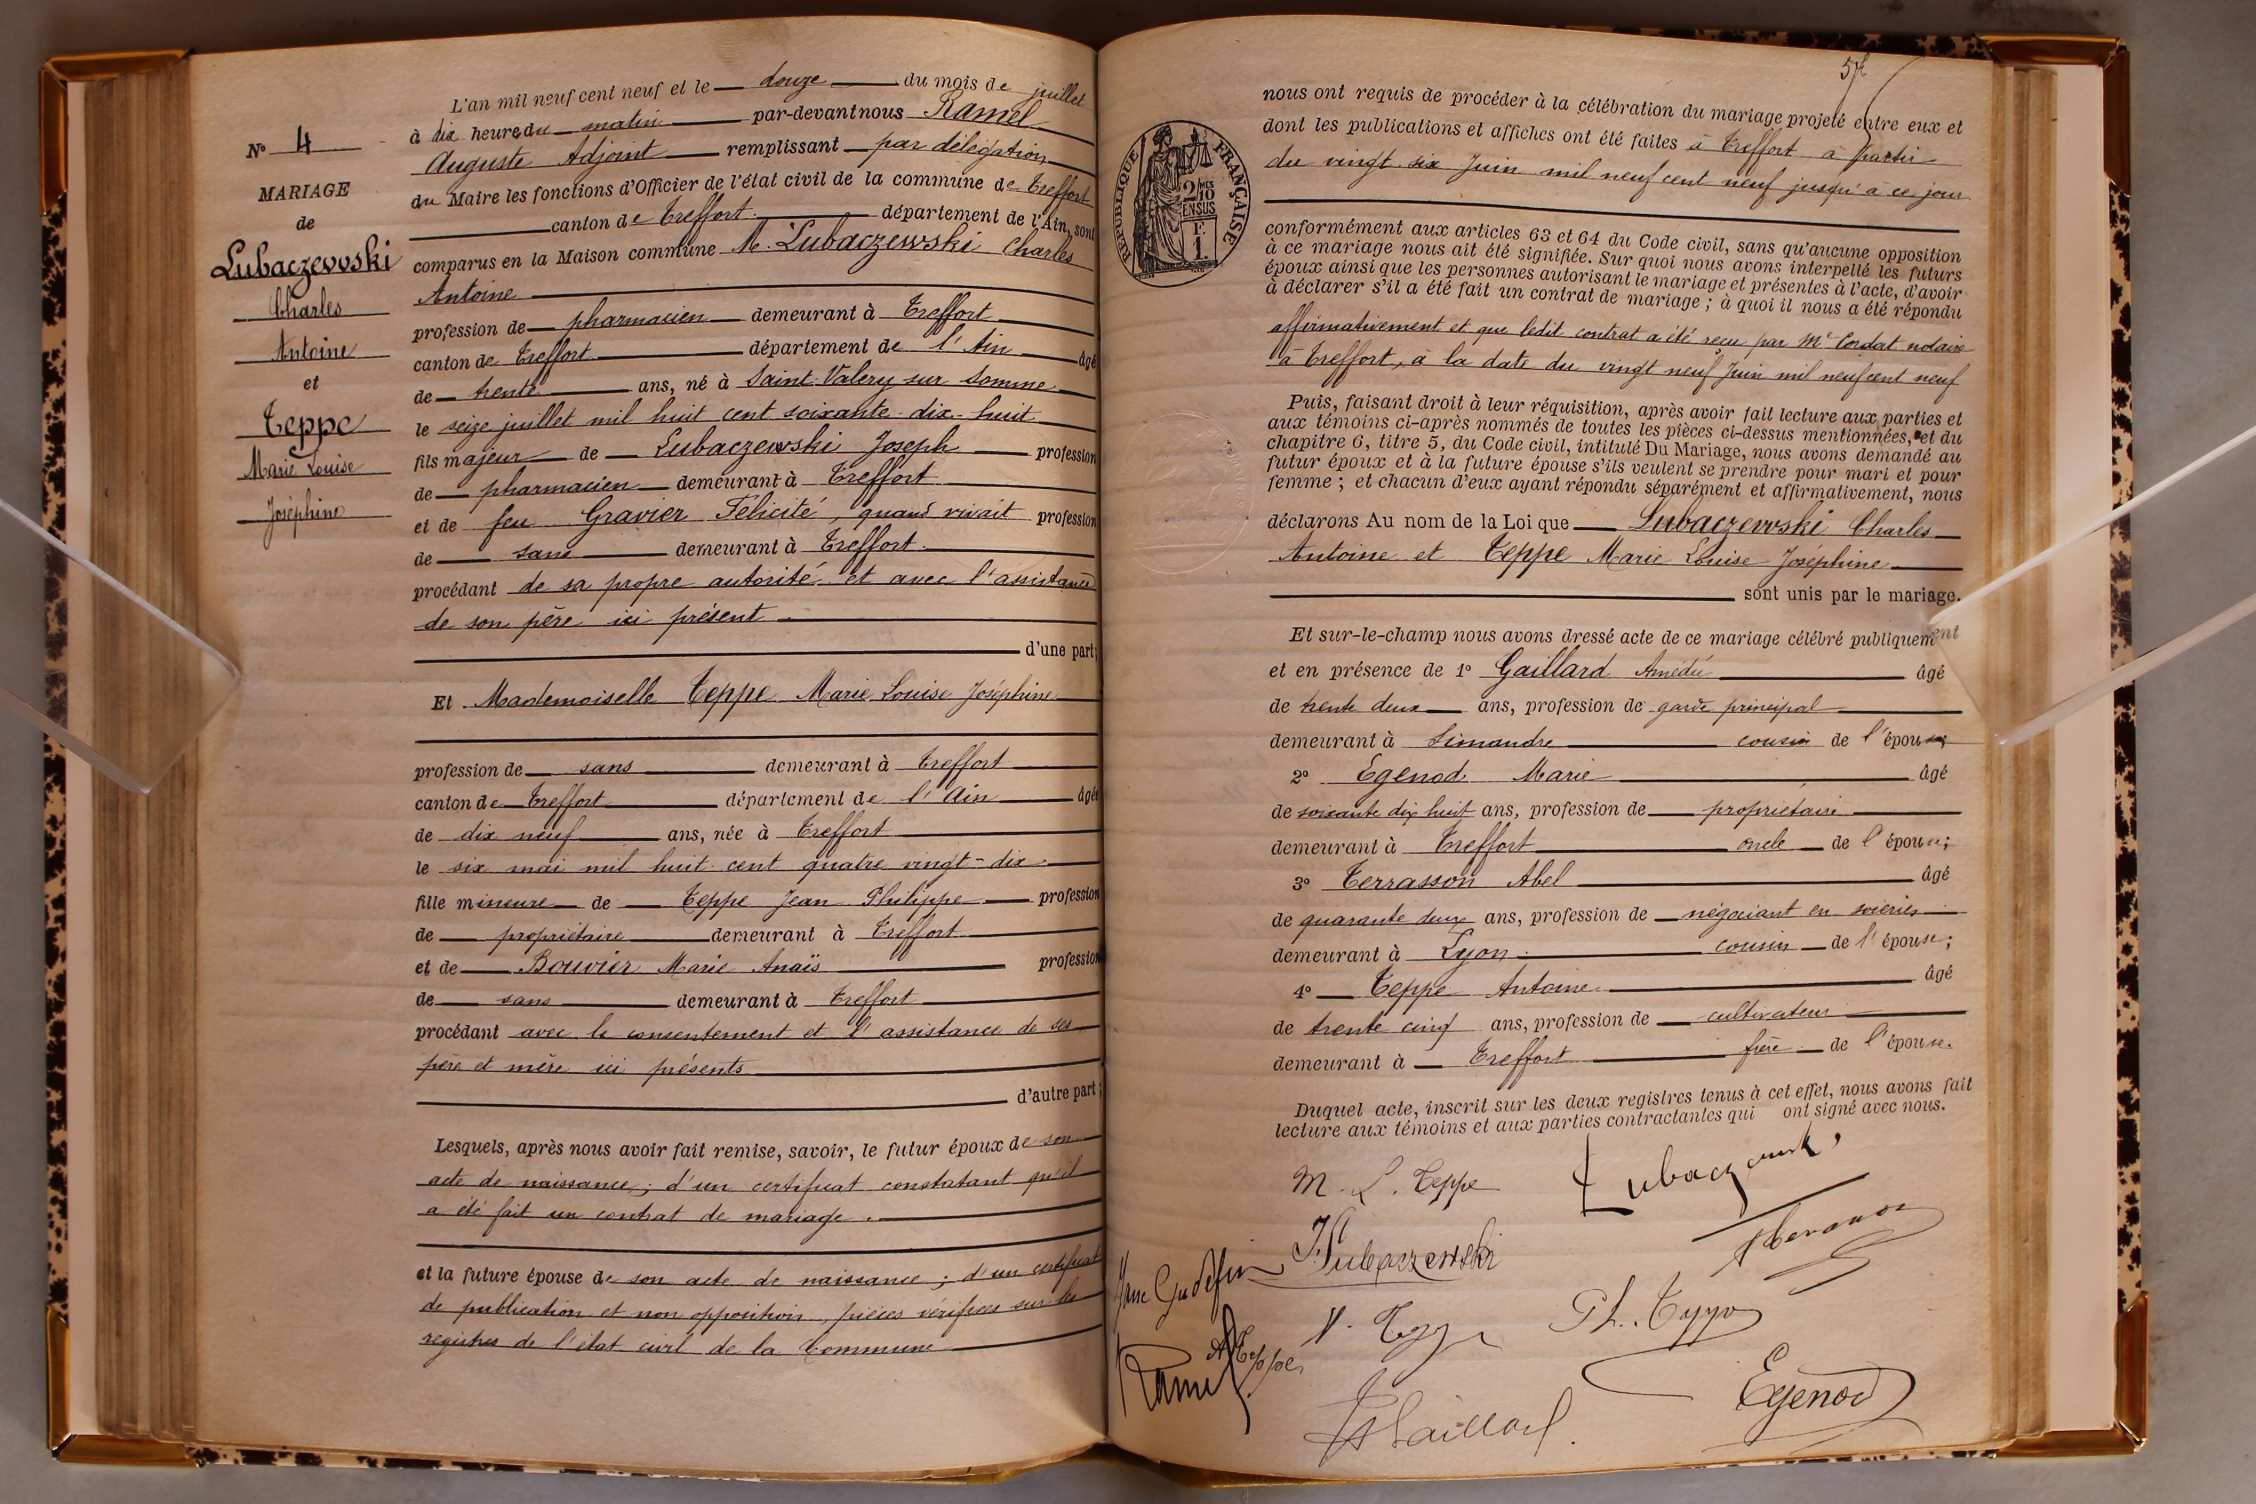 L'an mil neuf cent neuf et le douze du mois de juillet
à dix heures du matin par-devant nous Ramel
Auguste Adjoint remplissant par délégation
du Maire les fonctions d'Officier de l'état civil de la commune de Treffort
canton de Treffort département de l'Ain, sont
comparus en la Maison commune M. Lubaczewski Charles
Antoine
profession de pharmacien demeurant à Treffort
canton de Treffort département de l'Ain âgé
de trente ans, né à Saint-Valery sur Somme
le seize juillet mil huit cent soixante-dix-huit
fils majeur de Lubaczewski Joseph profession
de pharmacien demeurant à Treffort
et de feu Gravier Félicité, quand vivait profession
de sans demeurant à Treffort
procédant de sa propre autorité et avec l'assistance
de son père ici présent
d'une part;
Et Mademoiselle Teppe Marie Louise Joséphine
profession de sans demeurant à Treffort
canton de Treffort département de l'Ain âgée
de dix neuf ans, née à Treffort
le six mai mil huit cent quatre vingt-dix
fille mineure de Teppe Jean Philippe profession
de propriétaire demeurant à Treffort
et de Bouvier Marie Anaïs profession
de sans demeurant à Treffort
procédant avec le consentement et l'assistance de ses
père et mère ici présents
d'autre part;
Lesquels, après nous avoir fait remise, savoir, le futur époux de son
acte de naissance; d'un certificat constatant qu'il
a été fait un contrat de mariage.
et la future épouse de son acte de naissance; d'un certificat
de publication et non opposition, pièces vérifiées sur les
registres de l'état civil de la Commune
N° 4
MARIAGE
de
Lubaczewski
Charles
Antoine
et
Teppe
Marie Louise
Joséphine
57
RÉPUBLIQUE FRANÇAISE
2 MES
10
EN SUS
F.
1.
nous ont requis de procéder à la célébration du mariage projeté entre eux et
dont les publications et affiches ont été faites à Treffort à partir
du vingt six Juin mil neuf cent neuf jusqu'à ce jour
conformément aux articles 63 et 64 du Code civil, sans qu'aucune opposition
à ce mariage nous ait été signifiée. Sur quoi nous avons interpellé les futurs
époux ainsi que les personnes autorisant le mariage et présentes à l'acte, d'avoir
à déclarer s'il a été fait un contrat de mariage; à quoi il nous a été répondu
affirmativement et que ledit contrat a été reçu par Me Cordat notaire
à Treffort, à la date du vingt neuf Juin mil neuf cent neuf
Puis, faisant droit à leur réquisition, après avoir fait lecture aux parties et
aux témoins ci-après nommés de toutes les pièces ci-dessus mentionnées, et du
chapitre 6, titre 5, du Code civil, intitulé Du Mariage, nous avons demandé au
futur époux et à la future épouse s'ils veulent se prendre pour mari et pour
femme; et chacun d'eux ayant répondu séparément et affirmativement, nous
déclarons Au nom de la Loi que Lubaczewski Charles
Antoine et Teppe Marie Louise Joséphine
sont unis par le mariage.
Et sur-le-champ nous avons dressé acte de ce mariage célébré publiquement
et en présence de 1° Gaillard Amédé âgé
de trente deux ans, profession de garde principal
demeurant à Simandre cousin de l'épouse;
2° Egenod Marie âgé
de soixante dix huit ans, profession de propriétaire
demeurant à Treffort oncle de l'épouse;
3° Terrasson Abel âgé
de quarante deux ans, profession de négociant en soieries
demeurant à Lyon cousin de l'épouse;
4° Teppe Antoine âgé
de trente cinq ans, profession de cultivateur
demeurant à Treffort frère de l'épouse.
Duquel acte, inscrit sur les deux registres tenus à cet effet, nous avons fait
lecture aux témoins et aux parties contractantes qui ont signé avec nous.
M. L. Teppe Lubaczewski
J. Lubaczewski
Ph. Teppe
A Teppe
Ramel
Egenod
Gaillard